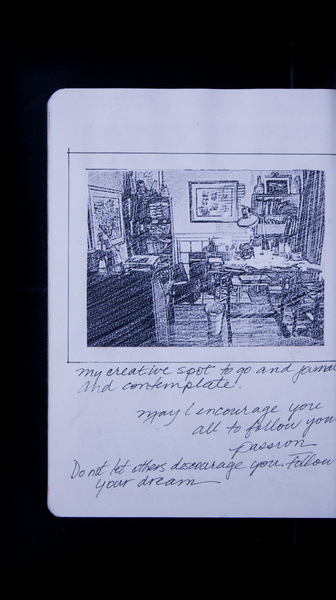 my creative spot to go and
and contemplate.
may I encourage you
all to follow you
passion
Do not let others discourage you. Follow
your dream